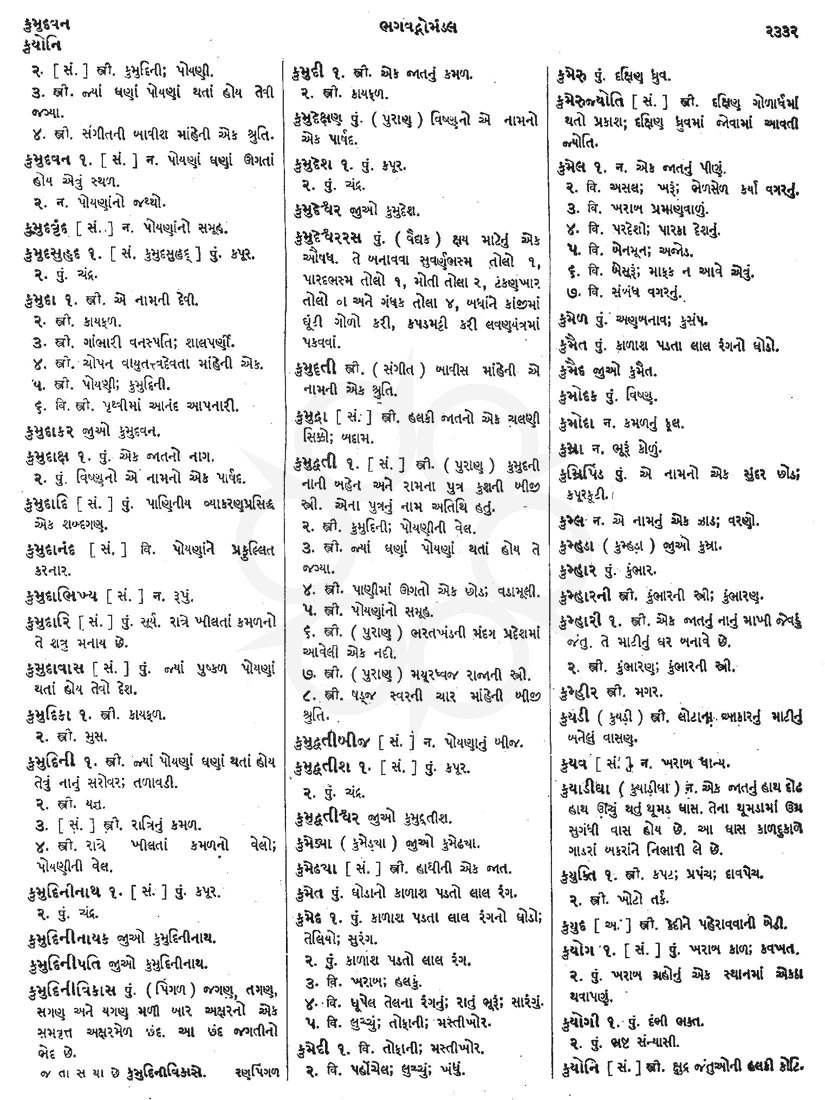 કુમુદવન
કુયોનિ
ભગવદ્ગોમંડલ
૨૩૩૨
૨. [ સં. ] સ્ત્રી. કુમુદિની; પોયણી.
૩. સ્ત્રી. જ્યાં ઘણાં પોયણાં થતાં હોય તેવી
જગ્યા.
૪. સ્ત્રી. સંગીતની બાવીશ માંહેની એક શ્રુતિ.
કુમુદવન ૧. [ સં. ] ન. પોયણાં ઘણાં ઊગતાં
હોય એવું સ્થળ.
૨. ન. પોયણાંનો જથ્થો.
કુમુદવૃંદ [ સં. ] ન. પોયણાંનો સમૂહ.
કુમુદસુહૃદ ૧. [ સં. કુમુદસુહૃદ્ ] પું. કપૂર.
૨. પું. ચંદ્ર.
કુમુદા ૧. સ્ત્રી. એ નામની દેવી.
૨. સ્ત્રી. કાયફળ.
૩. સ્ત્રી. ગાંભારી વનસ્પતિ; શાલપર્ણી.
૪. સ્ત્રી. ચોપન વાયુતત્ત્વદેવતા માંહેની એક.
૫. સ્ત્રી. પોયણી; કુમુદિની.
૬. વિ. સ્ત્રી. પૃથ્વીમાં આનંદ આપનારી.
કુમુદાકર જુઓ કુમુદવન.
કુમુદાક્ષ ૧. પું. એક જાતનો નાગ.
૨. પું. વિષ્ણુનો એ નામનો એક પાર્ષદ.
કુમુદાદિ [ સં. ] પું. પાણિનીય વ્યાકરણપ્રસિદ્ધ
એક શબ્દગણ.
કુમુદાનંદ [ સં. ] વિ. પોયણાંને પ્રફુલ્લિત
કરનાર.
કુમુદાભિખ્ય [ સં. ] ન. રૂપું.
કુમુદારિ [ સં. ] પું. સૂર્ય. રાત્રે ખીલતાં કમળનો
તે શત્રુ મનાય છે.
કુમુદાવાસ [ સં. ] પું. જ્યાં પુષ્કળ પોયણાં
થતાં હોય તેવો દેશ.
કુમુદિકા ૧. સ્ત્રી. કાયફળ.
૨. સ્ત્રી. મુસ.
કુમુદિની ૧. સ્ત્રી. જ્યાં પોયણાં ઘણાં થતાં હોય
તેવું નાનું સરોવર; તળાવડી.
૨. સ્ત્રી. યજ્ઞ.
૩. [ સં. ] સ્ત્રી. રાત્રિનું કમળ.
૪. સ્ત્રી. રાત્રે ખીલતાં કમળનો વેલો;
પોયણીની વેલ.
કુમુદિનીનાથ ૧. [ સં. ] પું. કપૂર.
૨. પું. ચંદ્ર.
કુમુદિનીનાયક જુઓ કુમુદિનીનાથ.
કુમુદિનીપતિ જુઓ કુમુદિનીનાથ.
કુમુદિનીવિકાસ પું. ( પિંગળ ) જગણ, તગણ,
સગણ અને યગણ મળી બાર અક્ષરનો એક
સમવૃત્ત અક્ષરમેળ છંદ. આ છંદ જગતીનો
ભેદ છે.
જ તા સ યા છે કુમુદિનીવિકાસે. રણપિંગળ
કુમુદી ૧. સ્ત્રી. એક જાતનું કમળ.
૨. સ્ત્રી. કાયફળ.
કુમુદેક્ષણ પું. ( પુરાણ ) વિષ્ણુનો એ નામનો
એક પાર્ષદ.
કુમુદેશ ૧. પું. કપૂર.
૨. પું. ચંદ્ર.
કુમુદેશ્વર જુઓ કુમુદેશ.
કુમુદેશ્વરરસ પું. ( વૈદ્યક ) ક્ષય માટેનું એક
ઔષધ. તે બનાવવા સુવર્ણભસ્મ તોલો ૧,
પારદભસ્મ તોલો ૧, મોતી તોલા ૨, ટંકણખાર
તોલો ૦ા અને ગંધક તોલા ૪, બધાંને કાંજીમાં
ઘૂંટી ગોળો કરી, કપડમટ્ટી કરી લવણયંત્રમાં
પકવવાં.
કુમુદ્દતી સ્ત્રી. ( સંગીત ) બાવીસ માંહેની એ
નામની એક શ્રુતિ.
કુમુદ્રા [ સં. ] સ્ત્રી. હલકી જાતનો એક ચલણી
સિક્કો; બદામ.
કુમુદ્વતી ૧. [ સં. ] સ્ત્રી. ( પુરાણ ) કુમુદની
નાની બહેન અને રામના પુત્ર કુશની બીજી
સ્ત્રી. એના પુત્રનું નામ અતિથિ હતું.
૨. સ્ત્રી. કુમુદિની; પોયણીની વેલ.
૩. સ્ત્રી. જ્યાં ઘણાં પોયણાં થતાં હોય તે
જગ્યા.
૪. સ્ત્રી. પાણીમાં ઊગતો એક છોડ; વડામૂલી.
૫. સ્ત્રી. પોયણાંનો સમૂહ.
૬. સ્ત્રી. ( પુરાણ ) ભરતખંડની મંદગ પ્રદેશમાં
આવેલી એક નદી.
૭. સ્ત્રી. ( પુરાણ ) મયૂરધ્વજ રાજાની સ્ત્રી.
૮. સ્ત્રી. ષડ્જ સ્વરની ચાર માંહેની બીજી
શ્રુતિ.
કુમુદ્વતીબીજ [ સં. ] ન. પોયણાનું બીજ.
કુમુદ્વતીશ ૧. [ સં. ] પું. કપૂર.
૨. પું. ચંદ્ર.
કુમુદ્વતીશ્વર જુઓ કુમુદ્વતીશ.
કુમેડ્યા ( કુમેડ્યા ) જુઓ કુમેઢ્યા.
કુમેઢ્યા [ સં. ] સ્ત્રી. હાથીની એક જાત.
કુમેત પું. ઘોડાનો કાળાશ પડતો લાલ રંગ.
કુમેદ ૧. પું. કાળાશ પડતા લાલ રંગનો ઘોડો;
તેલિયો; સુરંગ.
૨. પું. કાળાંશ પડતો લાલ રંગ.
૩. વિ. ખરાબ; હલકું.
૪. વિ. ધૂપેલ તેલના રંગનું; રાતું ભૂરૂં; સારંગું.
૫. વિ. લુચ્ચું; તોફાની; મસ્તીખોર.
કુમેદી ૧. વિ. તોફાની; મસ્તીખોર.
૨. વિ. પહોંચેલ; લુચ્ચું; ખંધું.
કુમેરુ પું. દક્ષિણ ધ્રુવ.
કુમેરુજ્યોતિ [ સં. ] સ્ત્રી. દક્ષિણ ગોળાર્ધમાં
થતો પ્રકાશ; દક્ષિણ ધ્રુવમાં જોવામાં આવતી
જ્યોતિ.
કુમેલ ૧. ન. એક જાતનું પીણું.
૨. વિ. અસલ; ખરૂં; ભેળસેળ કર્યા વગરનું.
૩. વિ. ખરાબ પ્રમાણવાળું.
૪. વિ. પરદેશી; પારકા દેશનું.
૫. વિ. બેનમૂન; અજોડ.
૬. વિ. બેસૂરૂં; માફક ન આવે એવું.
૭. વિ. સંબંધ વગરનું.
કુમેળ પું. અણબનાવ; કુસંપ.
કુમૈત પું. કાળાશ પડતા લાલ રંગનો ઘોડો.
કુમૈદ જુઓ કુમૈત.
કુમોદક પું. વિષ્ણુ.
કુમોદા ન. કમળનું ફૂલ.
કુમ્રા ન. ભૂરૂં કોળું.
કુમ્રિપિંડ પું. એ નામનો એક સુંદર છોડ;
કપૂરફૂટી.
કુમ્લ ન. એ નામનું એક ઝાડ; વરણો.
કુમ્હડા ( કુમ્હડા ) જુઓ કુમ્રા.
કુમ્હાર પું. કુંભાર.
કુમ્હારની સ્ત્રી. કુંભારની સ્ત્રી; કુંભારણ.
કુમ્હારી ૧. સ્ત્રી. એક જાતનું નાનું માખી જેવડું
જંતુ. તે માટીનું ઘર બનાવે છે.
૨. સ્ત્રી. કુંભારણ; કુંભારની સ્ત્રી.
કુમ્હીર સ્ત્રી. મગર.
કુયડી ( કુયડી ) સ્ત્રી. લોટાના આકારનું માટીનું
બનેલું વાસણ.
કુયવ [ સં. ] ન. ખરાબ ધાન્ય.
કુયાડીધા ( કુયાડીધા ) ન. એક જાતનું હાથ દોઢ
હાથ ઊંચું થતું થૂમડ ઘાસ. તેના થૂમડામાં ઉગ્ર
સુગંધી વાસ હોય છે. આ ઘાસ કાળદુકાળે
ગાડરાં બકરાંને નિભાવી લે છે.
કુયુક્તિ ૧. સ્ત્રી. કપટ; પ્રપંચ; દાવપેચ.
૨. સ્ત્રી. ખોટો તર્ક.
કુયુદ [ અ. ] સ્ત્રી. કેદીને પહેરાવવાની બેડી.
કુયોગ ૧. [ સં. ] પું. ખરાબ કાળ; કવખત.
૨. પું. ખરાબ ગ્રહોનું એક સ્થાનમાં એકઠા
થવાપણું.
કુયોગી ૧. પું. દંભી ભક્ત.
૨. પું. ભ્રષ્ટ સંન્યાસી.
કુયોનિ [ સં. ] સ્ત્રી. ક્ષુદ્ર જંતુઓની હલકી કોટિ.